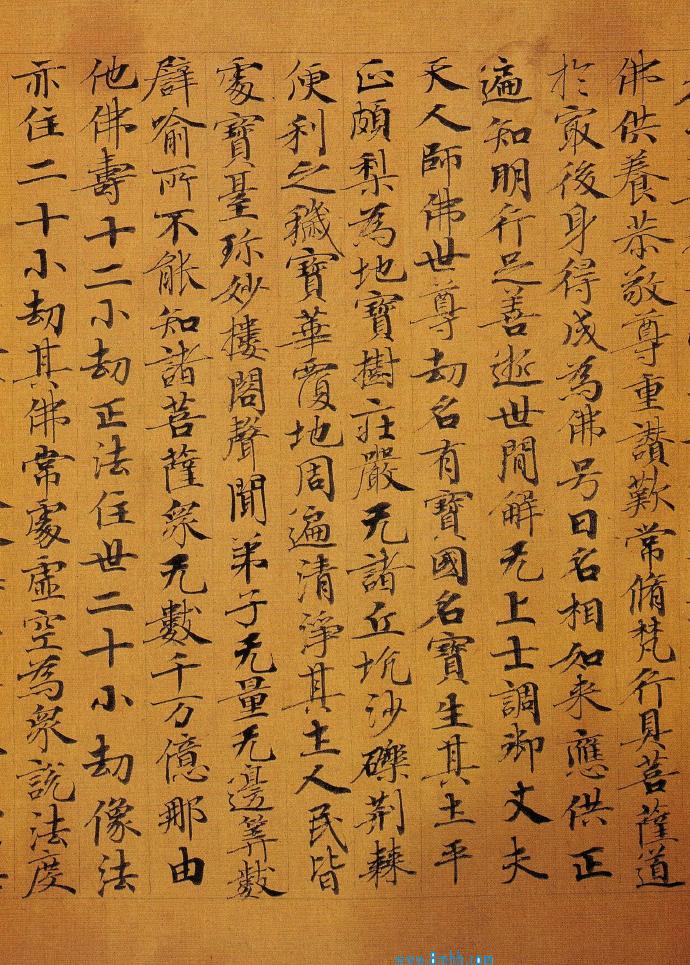 佛供養恭敬尊重讃歎常脩梵行具菩薩道
於冣後身得成為佛号曰名相如来應供正
遍知明行足善逝世間解无上士調御丈夫
天人師佛世尊劫名有寶國名寶生其土平
正頗梨為地寶樹莊嚴无諸丘坑沙礫荆棘
便利之穢寶華覆地周遍清淨其土人民皆
處寶臺珎妙樓閣聲聞弟子无量无邊筭數
譬喻所不能知諸菩薩衆无數千万億那由
他佛壽十二小劫正法住世二十小劫像法
亦住二十小劫其佛常處虛空為衆說法度